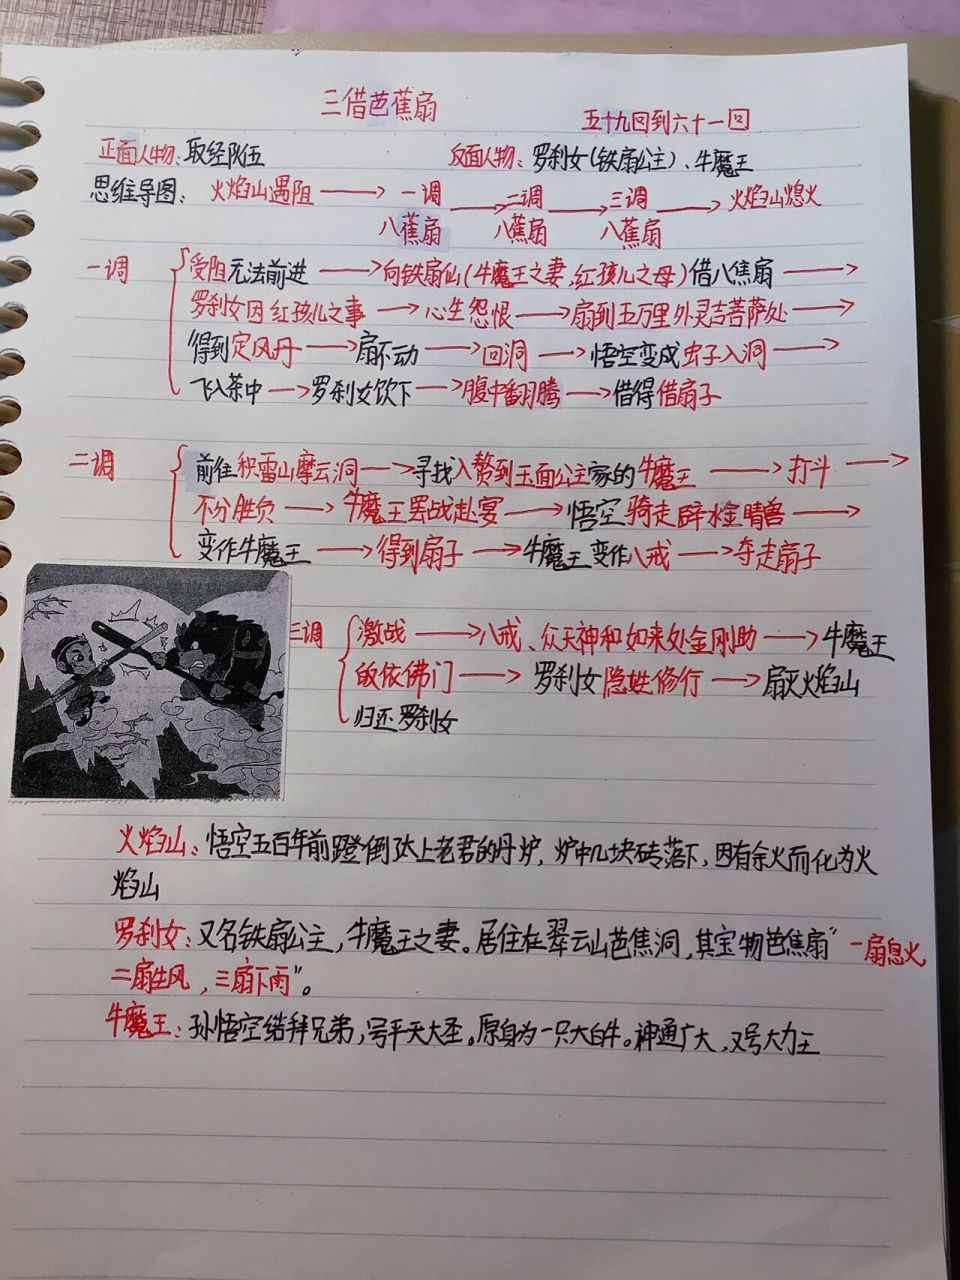 三借芭蕉扇
五十九回到六十一回
正面人物：取经队伍 反面人物：罗刹女(铁扇公主)、牛魔王
思维导图：火焰山遇阻→一调→二调→三调→火焰山熄火
八蕉扇 八蕉扇 八蕉扇
一调 受阻无法前进→向铁扇仙(牛魔王之妻,红孩儿之母)借八焦扇→
罗刹女因红孩儿之事→心生怨恨→扇到五万里外灵吉菩萨处→
得到定风丹→扇不动→回洞→悟空变成虫子入洞→
飞入茶中→罗刹女饮下→腹中翻腾→借得借扇子
二调 前往积雷山摩云洞→寻找入赘到玉面公主家的牛魔王→打斗→
不分胜负→牛魔王罢战赴宴→悟空骑走辟水金睛兽→
变作牛魔王→得到扇子→牛魔王变作八戒→夺走扇子
三调 激战→八戒、众天神和如来处金刚助→牛魔王
皈依佛门→罗刹女隐姓修行→扇灭火焰山
归还罗刹女
火焰山：悟空五百年前蹬倒太上老君的丹炉，炉中几块砖落下，因有余火而化为火
焰山
罗刹女：又名铁扇公主，牛魔王之妻。居住在翠云山芭焦洞，其宝物芭焦扇“一扇息火，
二扇生风，三扇下雨”。
牛魔王：孙悟空结拜兄弟，号平天大圣。原身为一只大白牛。神通广大，又号大力王